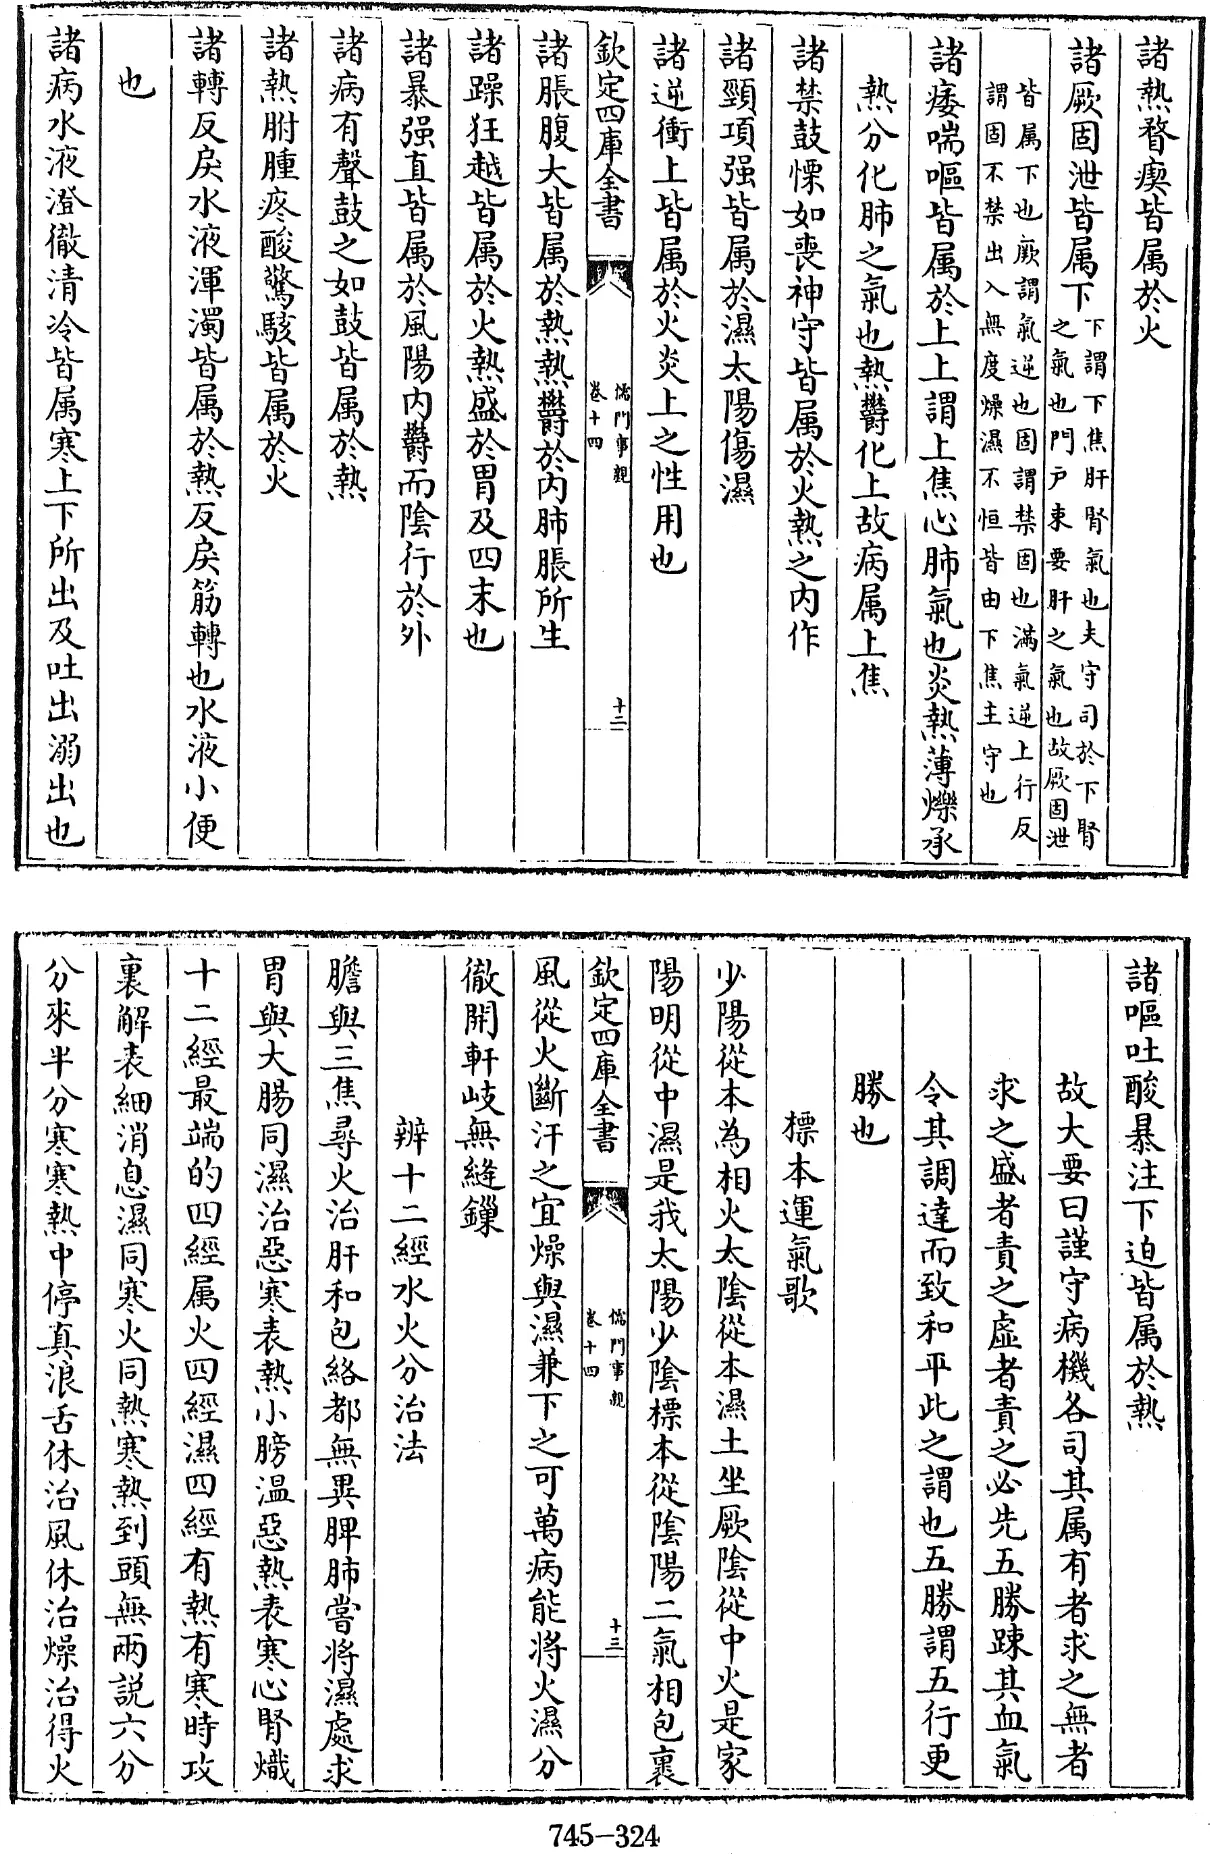 諸熱瞀瘈皆属於火
諸厥固泄皆属下下謂下焦肝腎氣也夫守司於下腎
之氣也門戸束要肝之氣也故厥固泄
皆属下也厥謂氣逆也固謂禁固也滿氣逆上行反
謂固不禁出入無度燥濕不恒皆由下焦主守也
諸痿喘嘔皆属於上上謂上焦心肺氣也炎熱薄爍承
熱分化肺之氣也熱鬱化上故病属上焦
諸禁鼓慄如喪神守皆属於火熱之内作
諸頸項强皆属於濕太陽傷濕
諸逆衝上皆属於火炎上之性用也
欽定四庫全書
儒門事親
卷十四
十二
諸脹腹大皆属於熱熱鬱於内肺脹所生
諸躁狂越皆属於火熱盛於胃及四末也
諸暴强直皆属於風陽内鬱而陰行於外
諸病有聲鼓之如鼓皆属於熱
諸熱胕腫疼酸驚駭皆属於火
諸轉反戾水液渾濁皆属於熱反戾筋轉也水液小便
也
諸病水液澄徹清冷皆属寒上下所出及吐出溺出也
諸嘔吐酸暴注下迫皆属於熱
故大要曰謹守病機各司其属有者求之無者
求之盛者責之虚者責之必先五勝踈其血氣
令其調達而致和平此之謂也五勝謂五行更
勝也
標本運氣歌
少陽從本為相火太陰從本濕土坐厥陰從中火是家
陽明從中濕是我太陽少陰標本從陰陽二氣相包裹
欽定四庫全書
儒門事親
卷十四
十三
風從火斷汗之宜燥與濕兼下之可萬病能將火濕分
徹開軒岐無縫鏁
辨十二經水火分治法
膽與三焦尋火治肝和包絡都無異脾肺嘗將濕處求
胃與大腸同濕治惡寒表熱小膀温惡熱表寒心腎熾
十二經最端的四經属火四經濕四經有熱有寒時攻
裏解表細消息濕同寒火同熱寒熱到頭無兩説六分
分來半分寒寒熱中停真浪舌休治風休治燥治得火
745-324